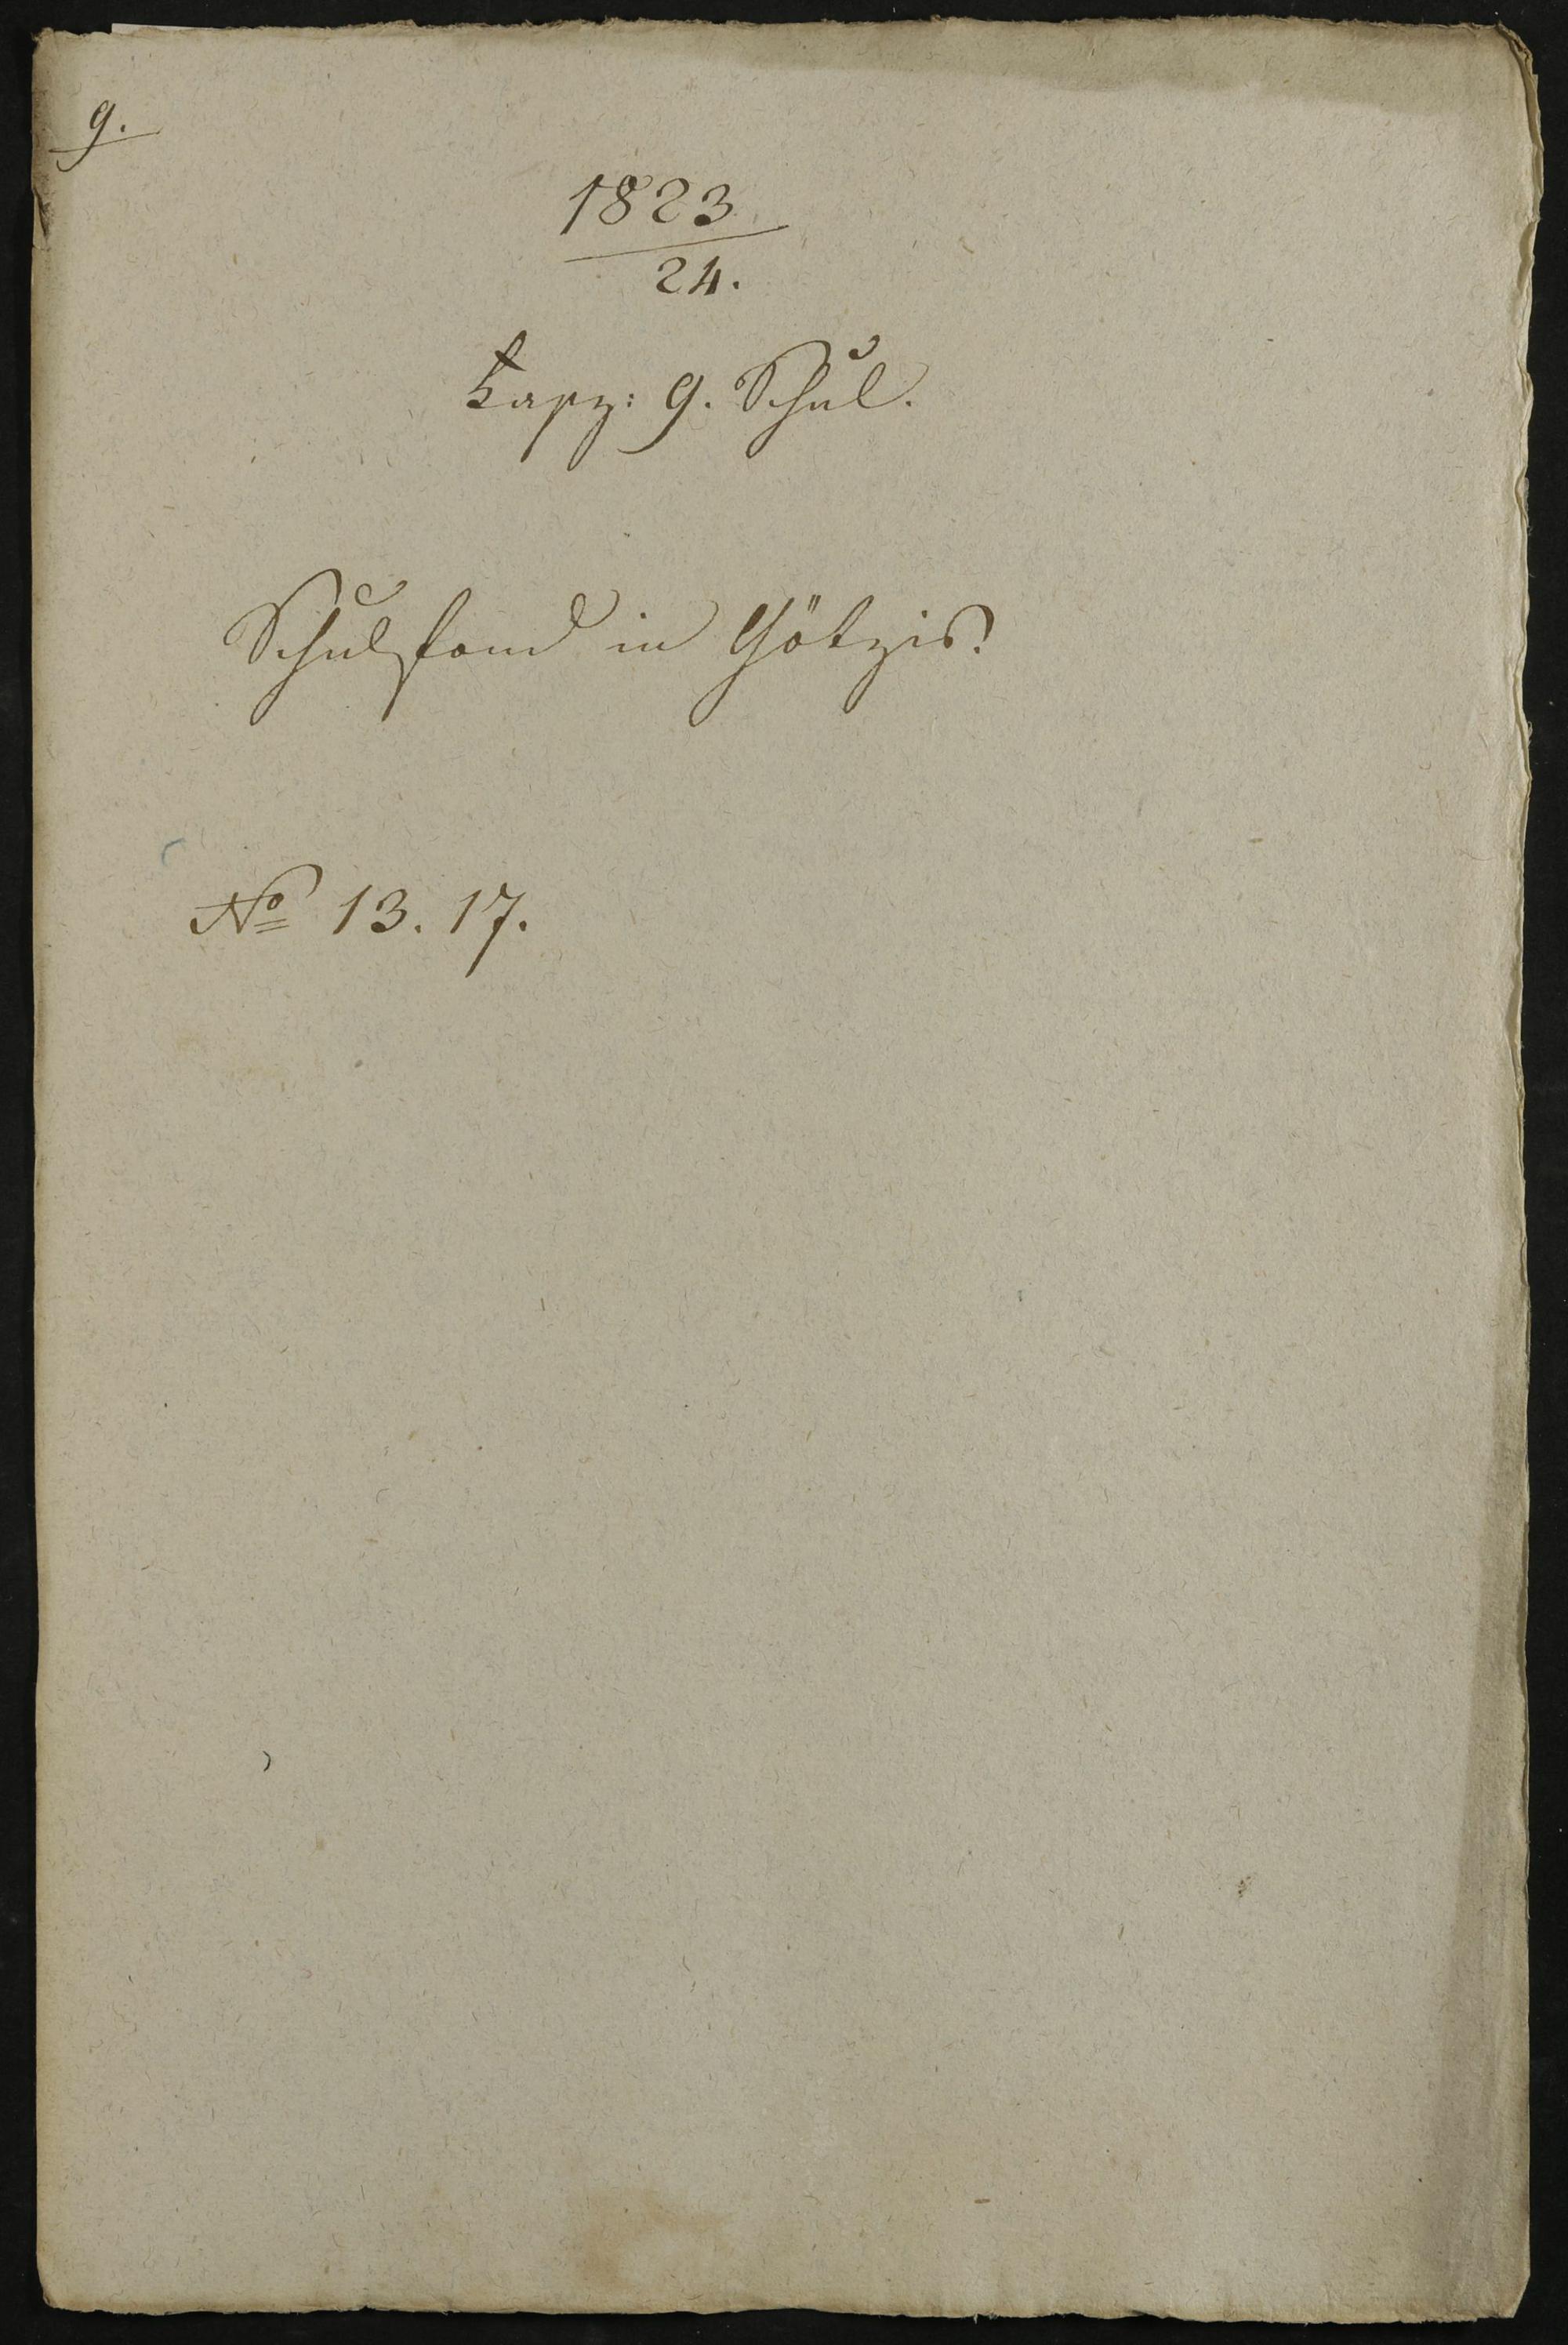 9.
1823
24.
Fasz: 9. Schul.
Schulfond in Götzis.
No 13. 17.